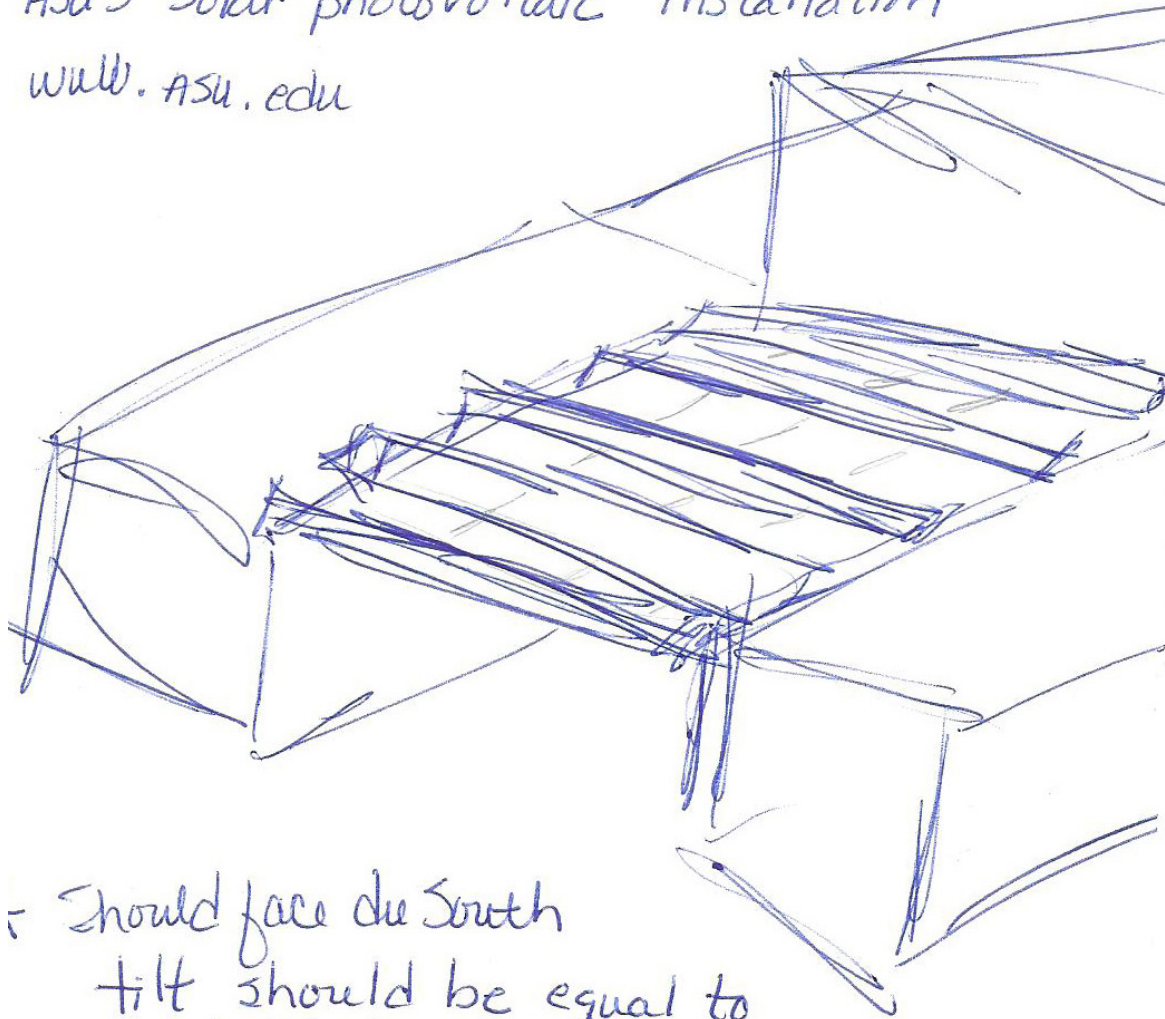 ASU's Solar photovoltaic Installation
www.ASU.edu
Should face du South
tilt should be equal to